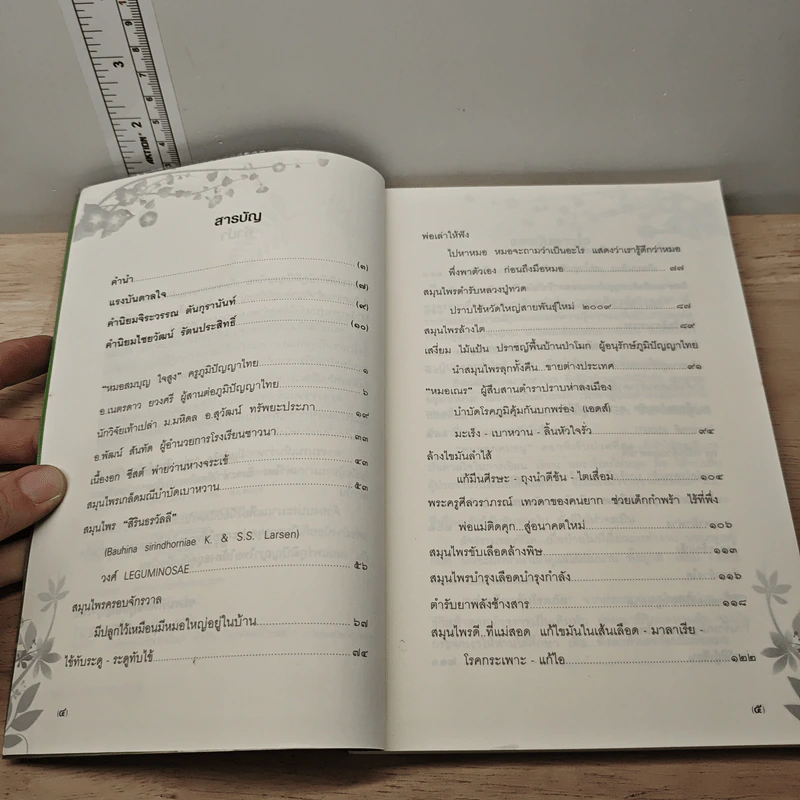 สารบัญ
คำนำ (๓)
แรงบันดาลใจ (๗)
คำนิยมจิระวรรณ ตันกุรานันท์ (๙)
คำนิยมไชยวัฒน์ รัตนประสิทธิ์ (๑๐)
"หมอสมบุญ ใจสูง" ครูภูมิปัญญาไทย ๑
อ.เนตรดาว ยวงศรี ผู้สานต่อภูมิปัญญาไทย ๖
นักวิจัยเท้าเปล่า ม.มหิดล อ.สุวัฒน์ ทรัพยะประภา ๑๙
อ.พัฒน์ สันทัด ผู้อำนวยการโรงเรียนชาวนา ๓๓
เนื้องอก ซีสต์ พ่ายว่านหางจระเข้ ๔๓
สมุนไพรเกล็ดมณีบำบัดเบาหวาน ๕๓
สมุนไพร "สิรินธรวัลลี"
(Bauhinia sirindhorniae K. & S.S. Larsen)
วงศ์ LEGUMINOSAE ๕๖
สมุนไพรครอบจักรวาล
มีปลูกไว้เหมือนมีหมอใหญ่อยู่ในบ้าน ๖๗
ไข้ทับระดู - ระดูทับไข้ ๗๔
(๔)
พ่อเล่าให้ฟัง
ไปหาหมอ หมอจะถามว่าเป็นอะไร แสดงว่าเรารู้ดีกว่าหมอ
พึ่งพาตัวเอง ก่อนถึงมือหมอ ๗๗
สมุนไพรตำรับหลวงปู่ทวด
ปราบไข้หวัดใหญ่สายพันธุ์ใหม่ ๒๐๐๙ ๘๗
สมุนไพรล้างไต ๘๙
เสงี่ยม ไม้แป้น ปราชญ์พื้นบ้านป่าโมก ผู้อนุรักษ์ภูมิปัญญาไทย
นำสมุนไพรลุกทั้งคืน..ขายต่างประเทศ ๙๑
"หมอเณร" ผู้สืบสานตำราปราบห่าลงเมือง
บำบัดโรคภูมิคุ้มกันบกพร่อง (เอดส์)
มะเร็ง - เบาหวาน - ลิ้นหัวใจรั่ว ๙๔
ล้างไขมันลำไส้
แก้มึนศีรษะ - ถุงน้ำดีข้น - ไตเสื่อม ๑๐๔
พระครูศีลวราภรณ์ เทวดาของคนยาก ช่วยเด็กกำพร้า ไร้ที่พึ่ง
พ่อแม่ติดคุก..สู่อนาคตใหม่ ๑๐๖
สมุนไพรขับเลือดล้างพิษ ๑๑๓
สมุนไพรบำรุงเลือดบำรุงกำลัง ๑๑๖
ตำรับยาพลังช้างสาร ๑๑๘
สมุนไพรดี..ที่แม่สอด แก้ไขมันในเส้นเลือด - มาลาเรีย -
โรคกระเพาะ - แก้ไอ ๑๒๒
(๕)
3
2
AKTION